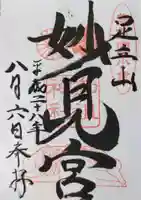 足立山
妙見宮
平成二十八年
八月六日参拝